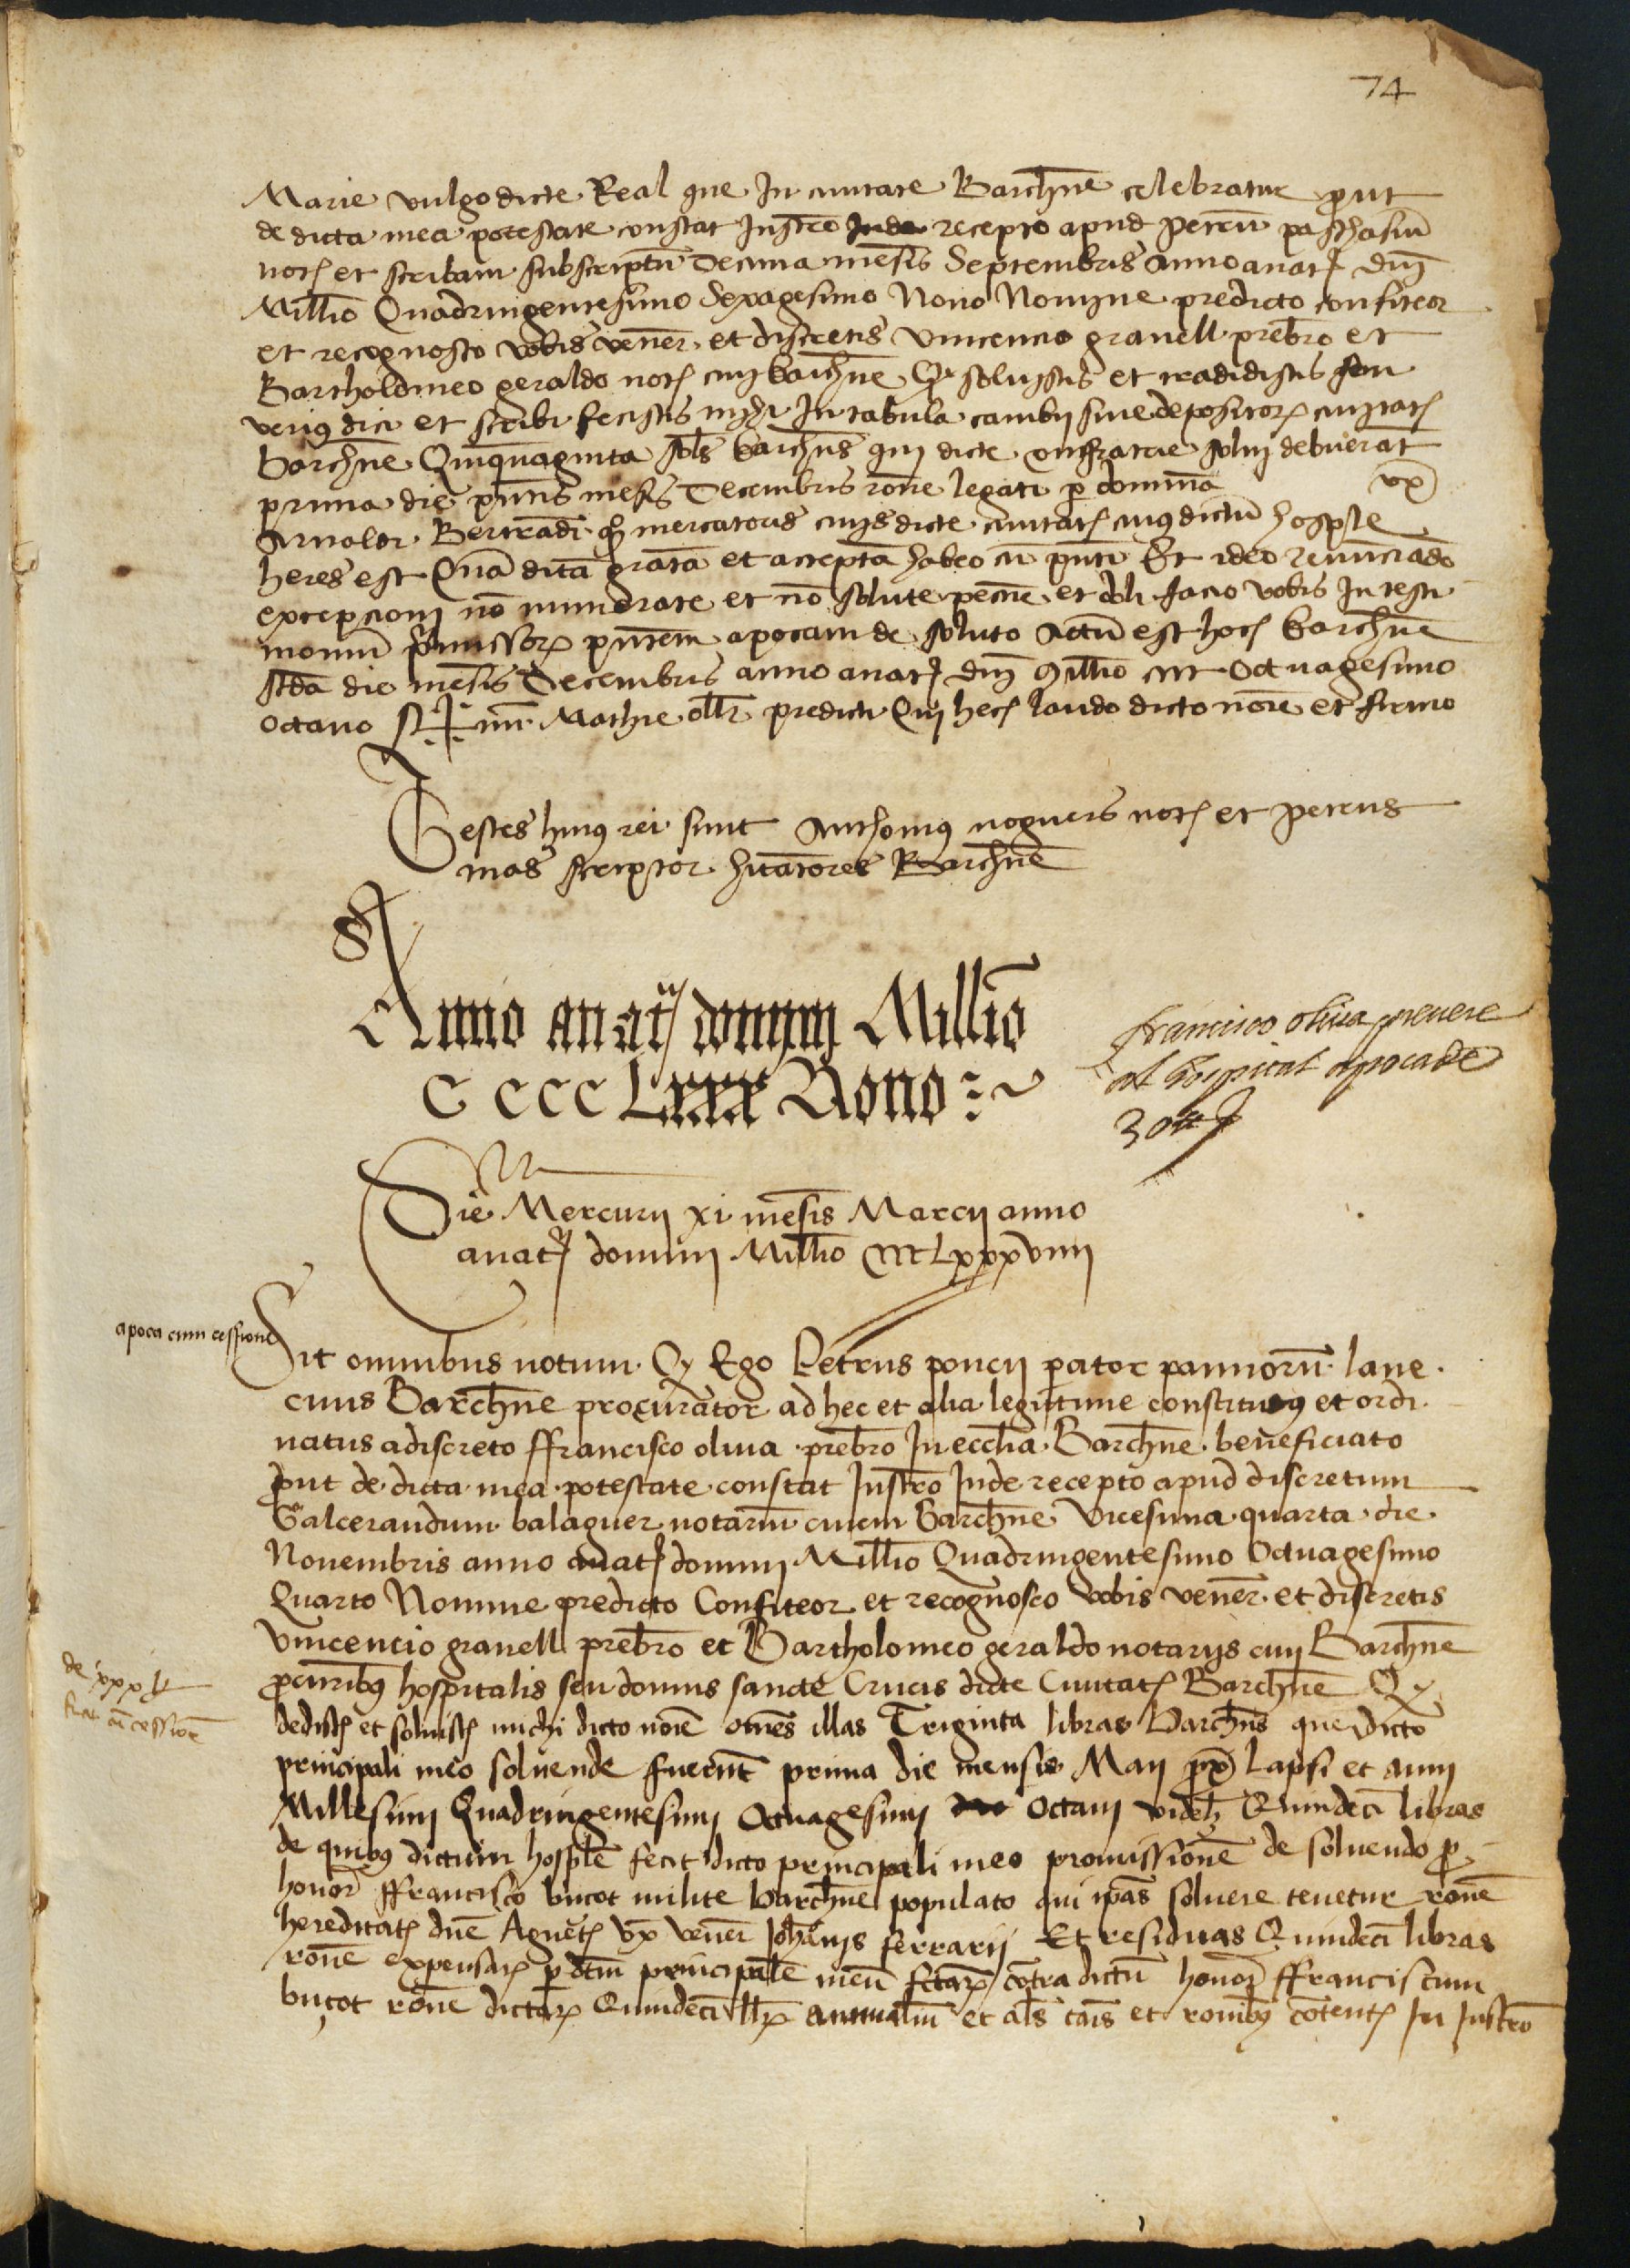 74
Marie vulgo dicte Real que In ciuitate Barchñe celebratur put
de dicta mea potestate constat Instro Inde recepto apud Petrũ paschasiũ
not et scribam subscriptũ Decima mẽsis Septembris anno anat dñj
Millio Quadringentesimo Sexagesimo Nono Nomine predicto confiteor
et recognosco vobis veñer et discretis vincencio granell prebro et
Bartholomeo geraldo not ciuj barchñe Qꝫ soluistis et tradidistis seu
verius dici et scribi fecistis michi In tabula cambij siue depositorꝫ ciuitatꝫ
barchñe Quinquaginta sols barchñs qui dicte confratrie solui debuerãt
prima die pñtis mẽsis Decembris rõne legati p dominã vx
Arnaldi Bertrandi qͦ mercatoris ciuis dicte ciuitatꝫ cuius dictũ hosple
heres est Quã ditã gratã et acceptã habeo cũ pñti Et ideo renũciãdo
excepcionj nõ numerate et nõ solute pecũe et doli facio vobis In testi
moniũ pmissorꝫ pñtem apocam de soluto Actũ est hoc barchñe
scda die mẽsis Decembris anno anat dñj Millio cccc Octuagesimo
octauo S✝num Mathie oller predicti Qui hec laudo dicto nõie et firmo
Testes huius rei sunt Anthonius noguers not et Petrus
mas scriptor hitatores Barchñe
Anno anatꝫ dominj Millio
C CCC Lxxx Nono
francisco oliua preuere
al hospital apoca de
30 ℔
Die Mercurij xi mẽsis Marcij anno
anatꝫ dominj Millio cccc Lxxxviiij
apoca cum cessione
Sit omnibus notum Qꝫ Ego Petrus poncij pator pannorũ lane
ciuis Barchñe procurator ad hec et alia legitime constitutus et ordi
natus a discreto ffrancisco oliua prebro In ecclia Barchñe beneficiato
put de dicta mea potestate constat Instro Inde recepto apud discretum
Galcerandum balaguer notariũ ciuem Barchñe Vicesima quarta die
Nouembris anno anatꝫ dominj Millio Quadringentesimo Octuagesimo
Quarto Nomine predicto Confiteor et recognosco vobis veñer et discretis
Vincencio granell prebro et Bartholomeo geraldo notarijs ciuj Barchñe
pcuribus hospitalis seu domus sancte Crucis dicte Ciuitatꝫ Barchñe Qꝫ
de xxx ℔
dedistꝫ et soluistꝫ michi dicto nõie om̃es illas Triginta libras barchñs que dicto
principali meo soluende fuerũt prima die mensis Maij px̃ lapsi et anni
Millesimj Quadringentesimj Octuagesimj octaui videlꝫ Quindecĩ libras
de quibus dictum hosple fecit dicto principali meo promissionẽ de soluendo p
honor ffrancisco buçot milite barchñe populato qui ip̃as soluere tenetur rõne
hereditatꝫ dñe Agnetꝫ vx̃ veñer Johãnis ferrarij Et residuas Quindecĩ libras
rõne expensarꝫ p dcm principalẽ meũ fctarꝫ cõtra dictũ honor ffranciscum
buçot rõne dictarꝫ Quindecĩ lbrꝫ annualiũ et als cãis et ronibus cõtentꝫ In Instro